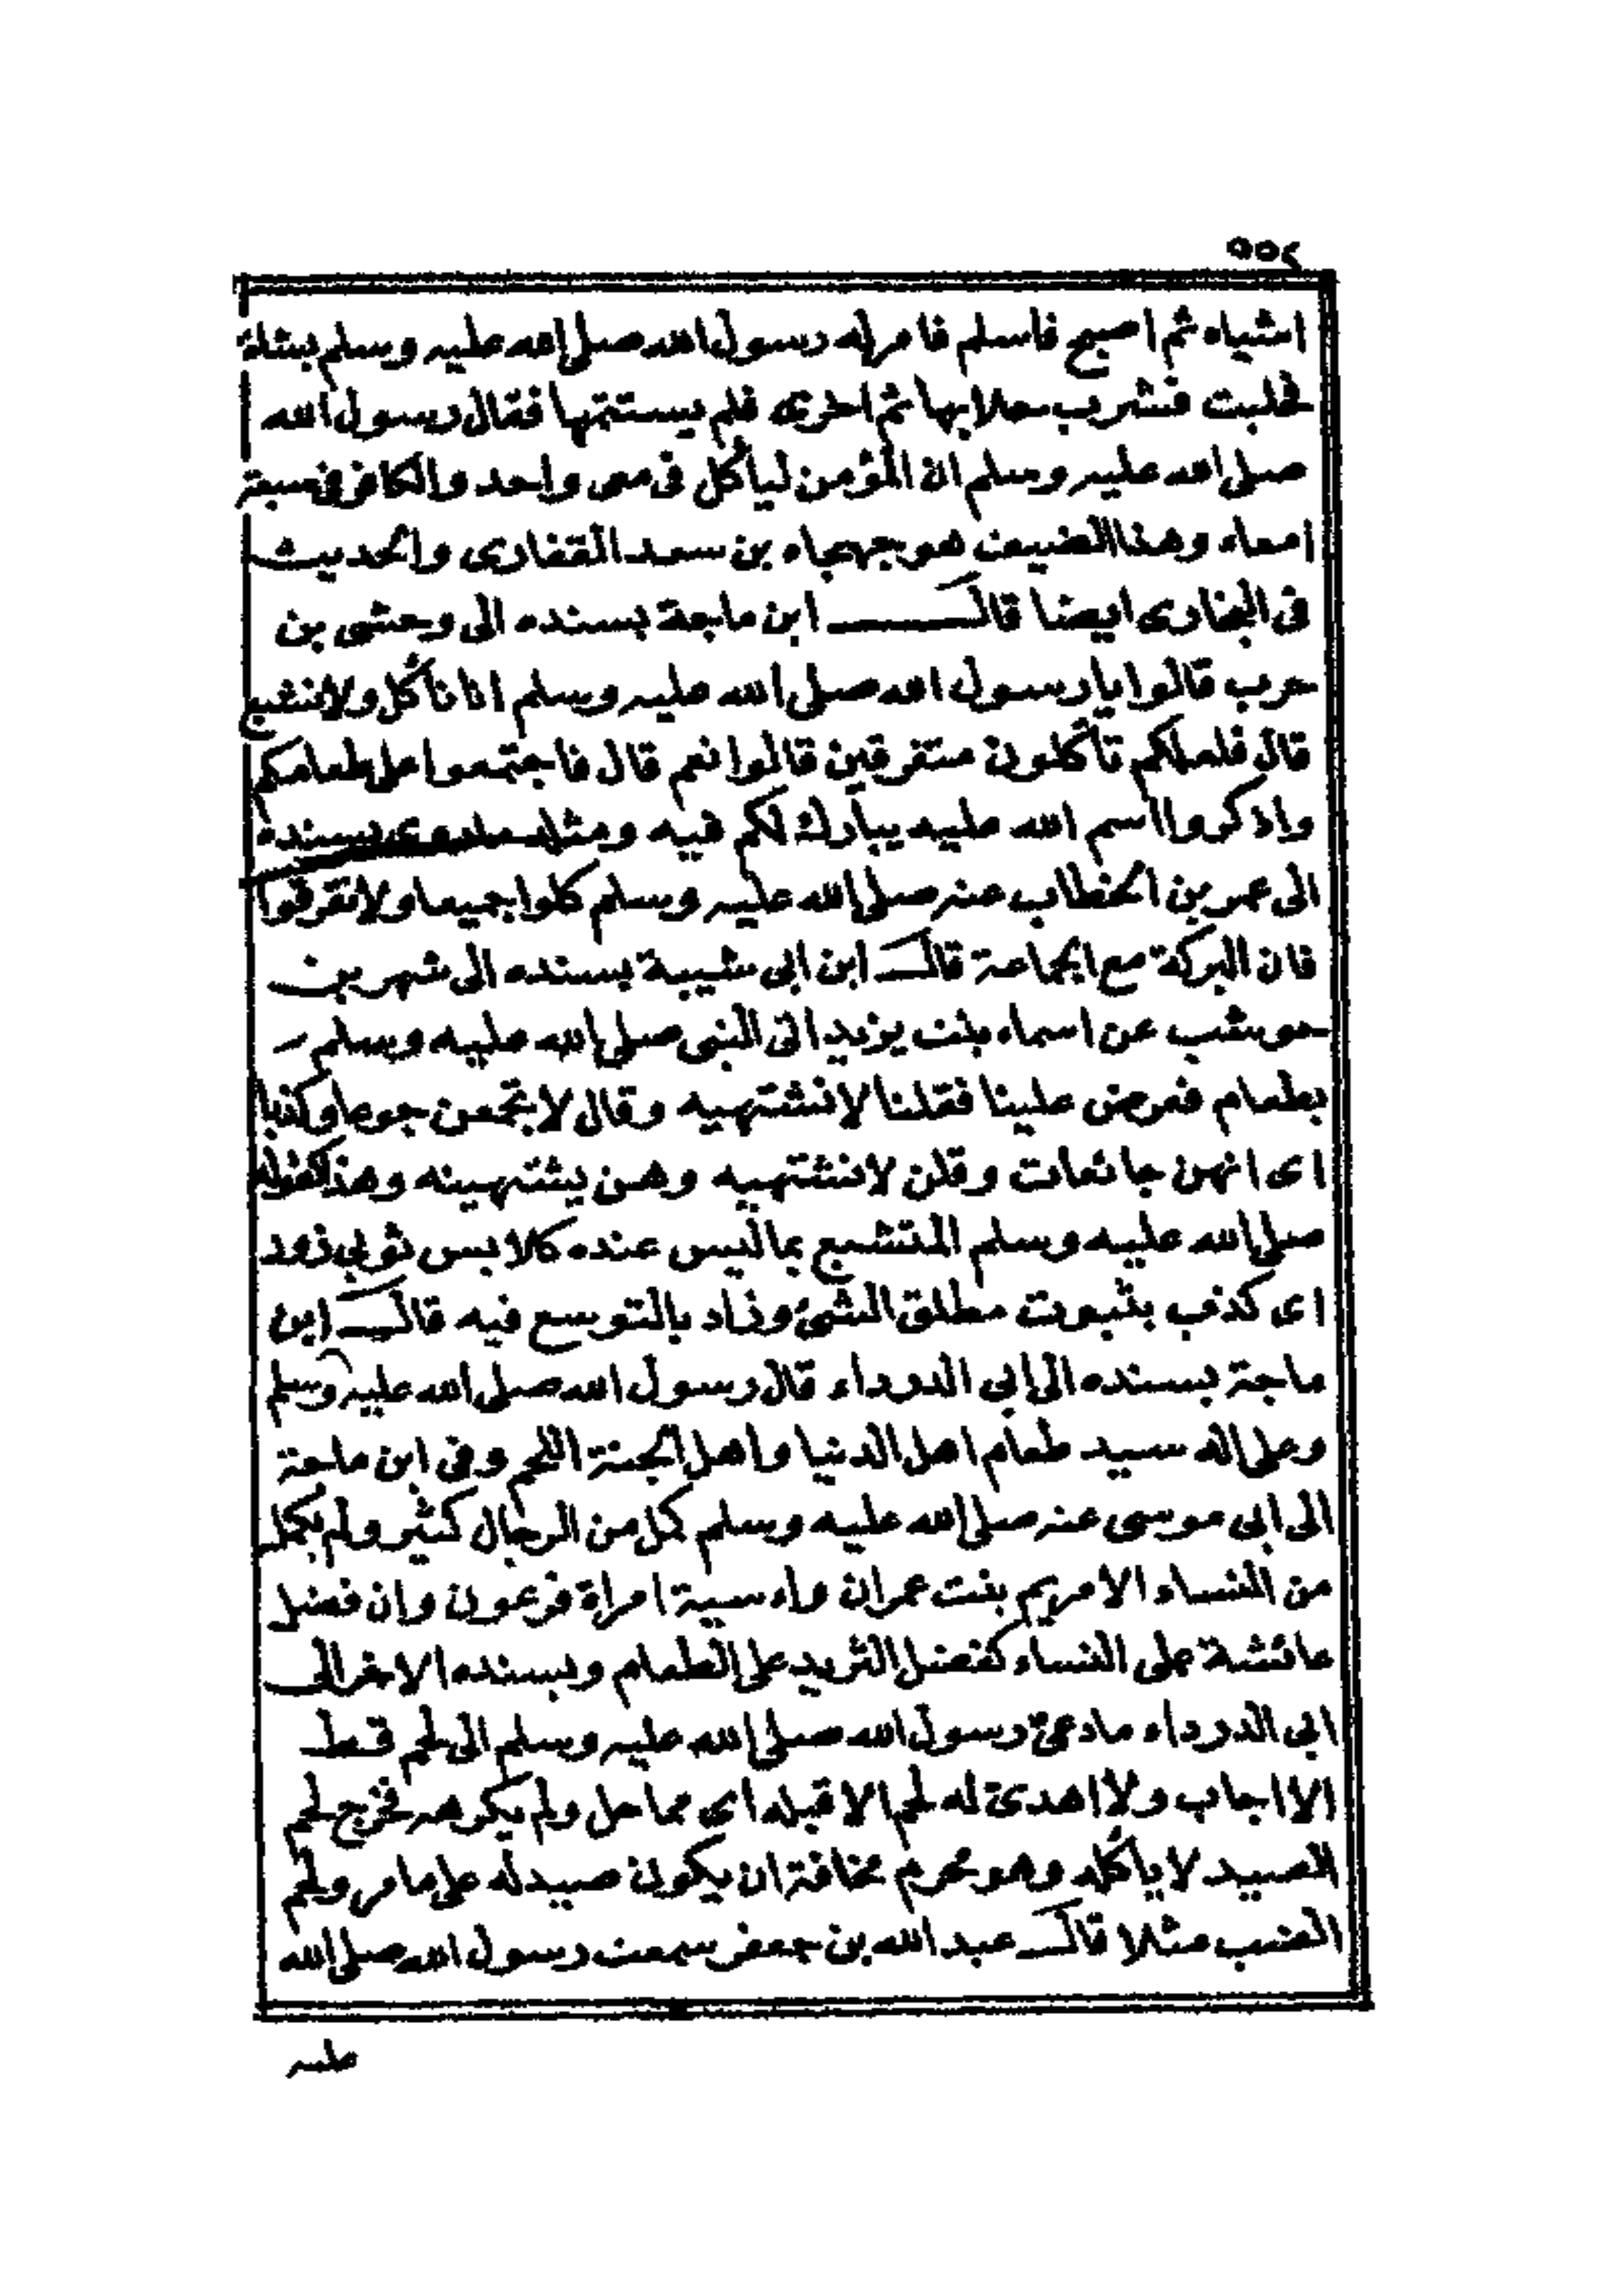 ٥٥٤
اشياه ثم اصبح فاسلم فامر له رسول الله صلى الله عليه وسلم بشاة
فحلبت فشرب حلابها ثم اخرى فلم يستتمها فقال رسول الله
صلى الله عليه وسلم ان المؤمن لياكل فى معى واحد والكافر فى سبعة
امعاء وهذا الضيف هو جهجاه بن سعد الغفارى والحديث
فى البخارى ايضا قال ابن ماجة بسنده الى وحشى بن
حرب قالوا يا رسول الله صلى الله عليه وسلم انا نأكل ولا نشبع
قال فلعلكم تأكلون متفرقين قالوا نعم قال فاجتمعوا على طعامكم
واذكروا اسم الله عليه يبارك لكم فيه ومثله بسنده
الى عمر بن الخطاب عنه صلى الله عليه وسلم كلوا جميعا ولا تفرقوا
فان البركة مع الجماعة قال ابن ابى شيبة بسنده الى شهر بن
حوشب عن اسماء بنت يزيد اتى النبى صلى الله عليه وسلم
بطعام فعرض علينا فقلنا لا نشتهيه وقال لا تجمعن جوعا وكذبا
اى انهن جائعات وقلن لا نشتهيه وهن يشتهينه وهذا كقوله
صلى الله عليه وسلم المتشبع بما ليس عنده كلابس ثوبى زور
اى كذب بثبوت مطلق الشئ وزاد بالتوسع فيه قال ابن
ماجة بسنده الى ابى الدرداء قال رسول الله صلى الله عليه وسلم
وعلى اله سيد طعام اهل الدنيا واهل الجنة اللحم وفى ابن ماجة
الى ابى موسى عنه صلى الله عليه وسلم كمل من الرجال كثير ولم يكمل
من النساء الا مريم بنت عمران واسية امراة فرعون وان فضل
عائشة على النساء كفضل الثريد على الطعام وبسنده الاخر الى
ابى الدرداء ما دعى رسول الله صلى الله عليه وسلم الى لحم قط
الا اجاب ولا اهدى له لحم الا قبله اى مما حل ولم يكرهه فخرج لحم
الصيد لا ياكله وهو محرم مخافة ان يكون صيد له على ما مر ولحم
الضب مثلا قال عبد الله بن جعفر سمعت رسول الله صلى الله
عليه